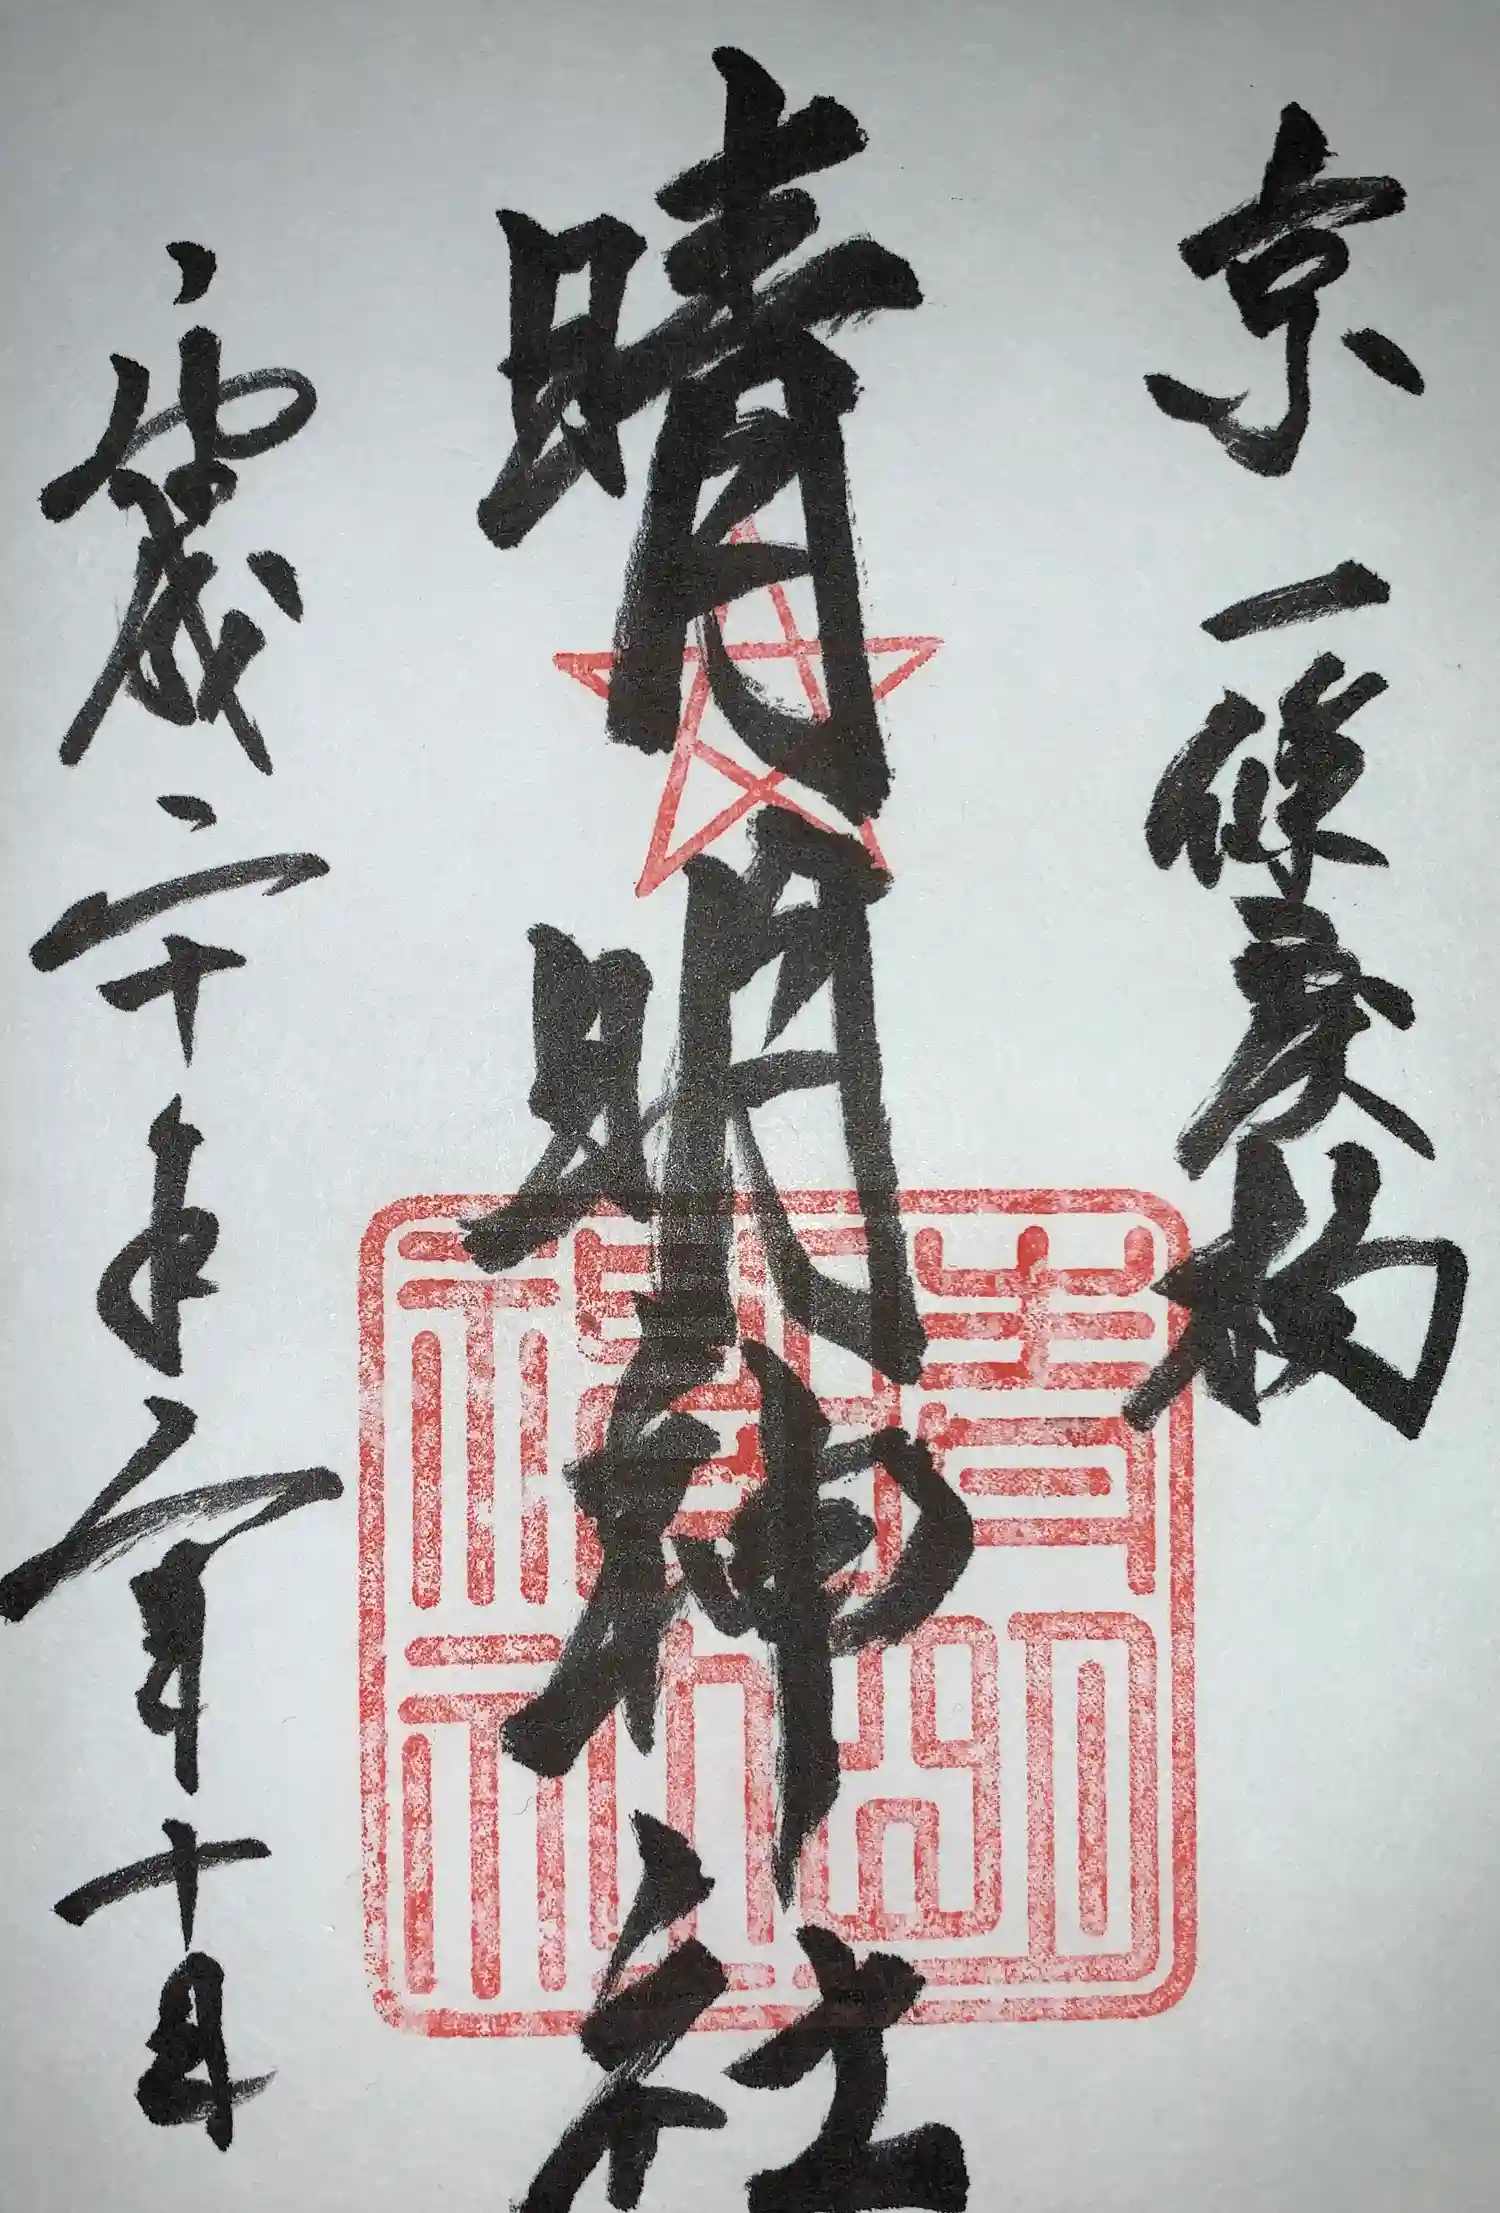 京一條戻橋
晴明神社
平成二十年月十日
晴明神社